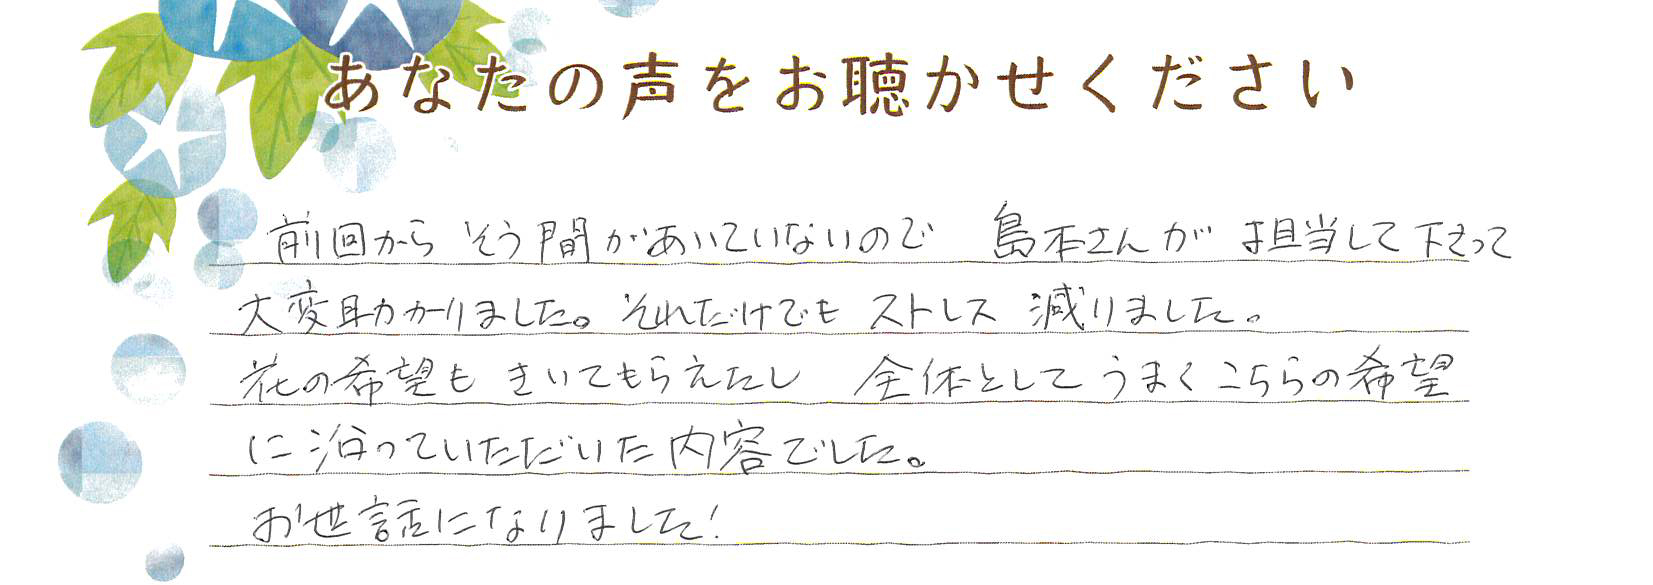 あなたの声をお聴かせください
前回から そう間があいていないので 島本さんが 担当して下さって
大変助かりました。それだけでも ストレス 減りました。
花の希望も きいてもらえたし 全体として うまく こちらの希望
に沿っていただいた内容でした。
お世話になりました!